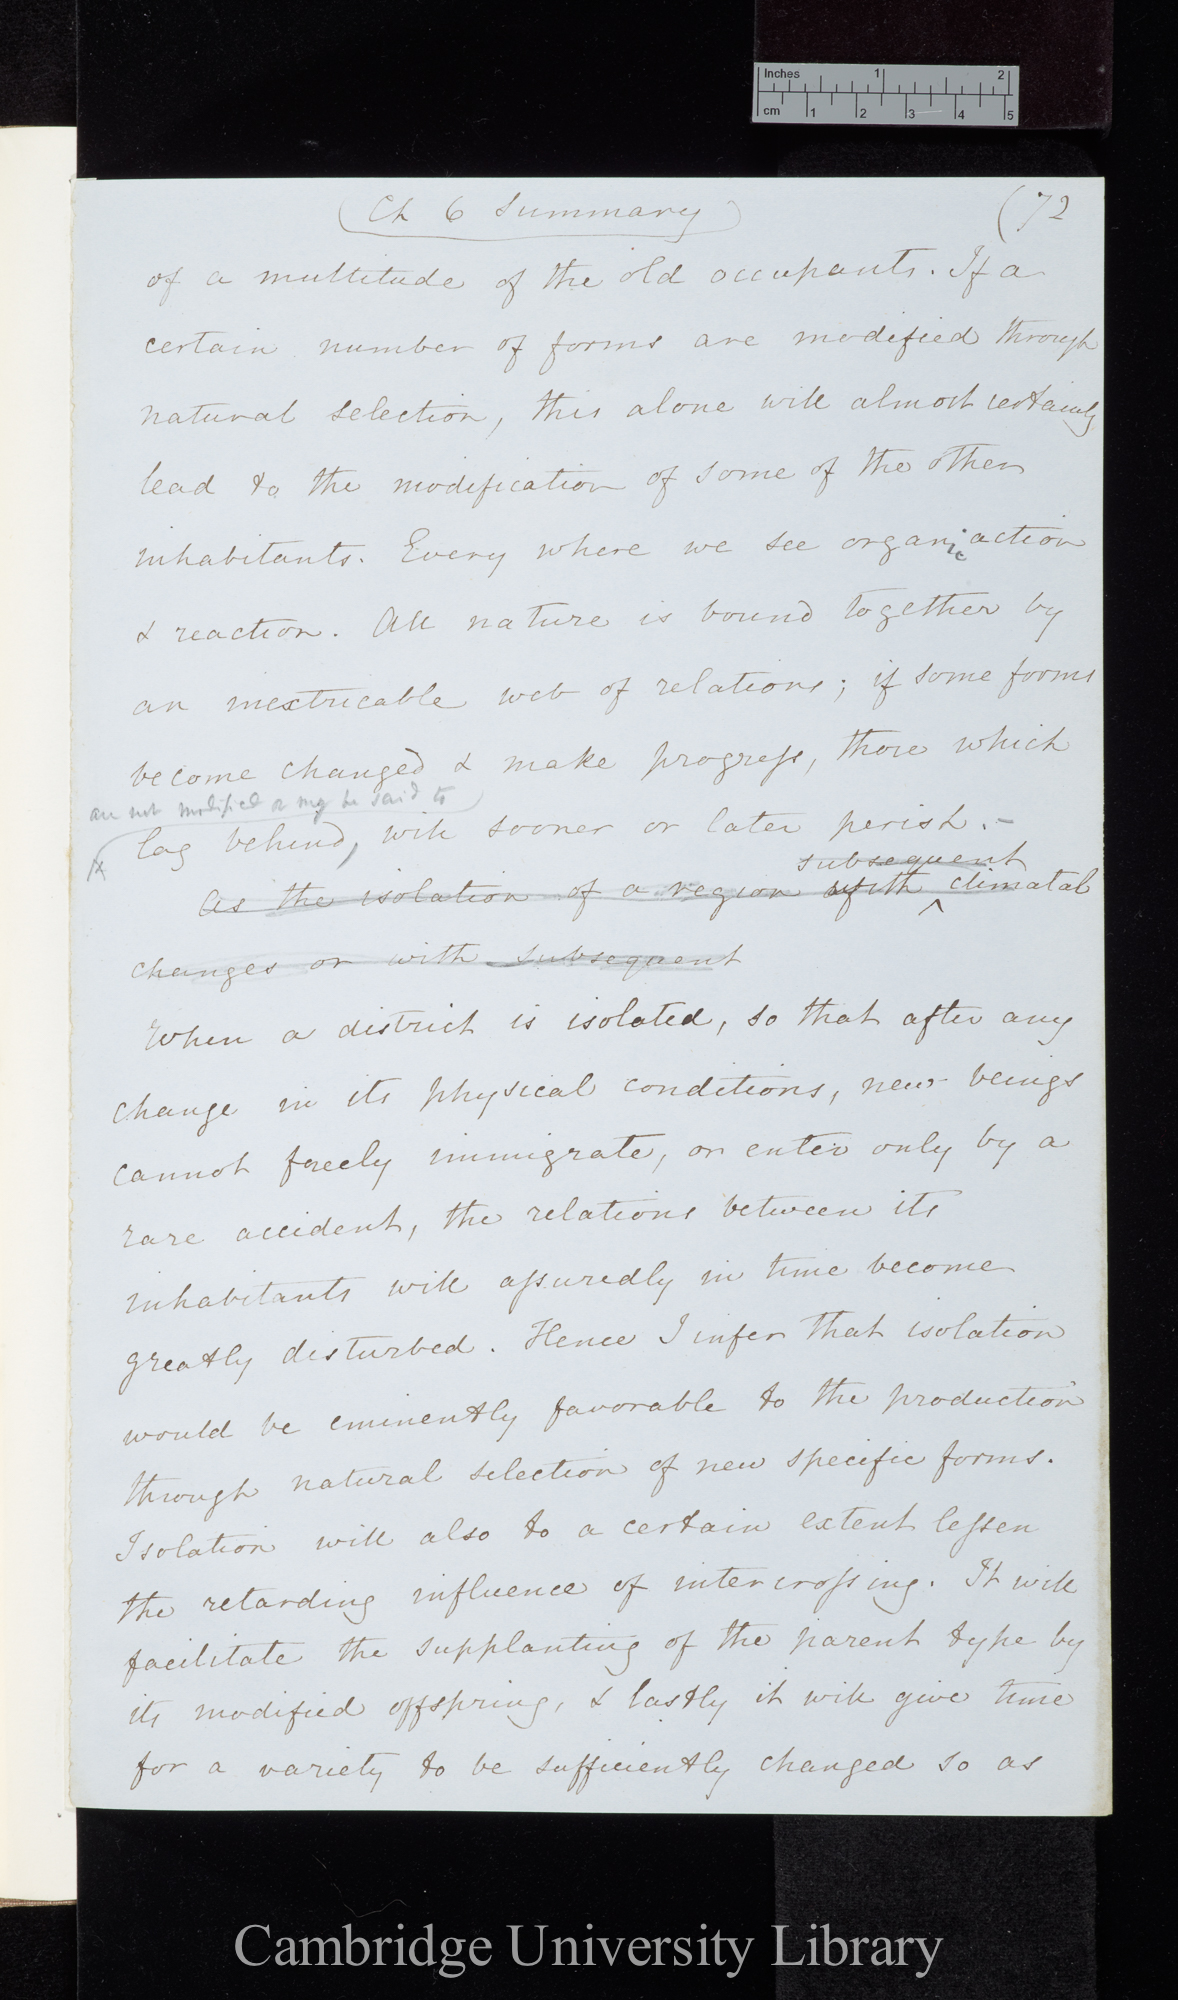 Inches 1 2
cm 1 2 3 4 5
Ch 6 Summary (72
of a multitude of the old occupants. If a
certain number of forms are modified through
natural selection, this alone will almost certainly
lead to the modification of some of the other
inhabitants. Every where we see organic action
& reaction. All nature is bound together by
an inextricable web of relations; if some forms
become changed & make progress, those which
are not modified or may be said to
lag behind, will sooner or later perish. —
subsequent
As the isolation of a region with climatal
changes or with subsequent
When a district is isolated, so that after any
change in its physical conditions, new beings
cannot freely immigrate, or enter only by a
rare accident, the relations between its
inhabitants will assuredly in time become
greatly disturbed. Hence I infer that isolation
would be eminently favorable to the production
through natural selection of new specific forms.
Isolation will also to a certain extent lessen
the retarding influence of intercrossing. It will
facilitate the supplanting of the parent type by
its modified offspring, & lastly it will give time
for a variety to be sufficiently changed so as
Cambridge University Library